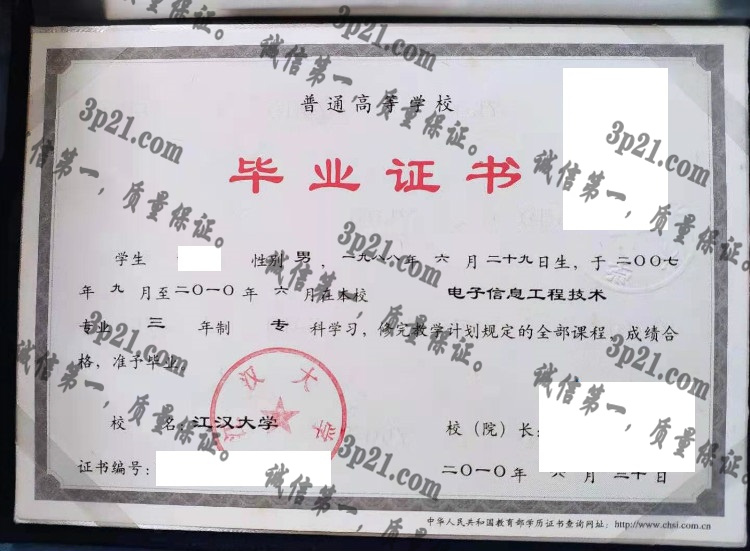 普通高等学校
毕业证书
学生 性别 男 ，一九八八年 六 月 二十九日生，于 二〇〇七
年 九 月至二〇一〇年 六 月在本校 电子信息工程技术
专业 三 年制 专 科学习，修完教学计划规定的全部课程，成绩合
格，准予毕业。
江汉大学
校 名：江汉大学
校（院）长：
证书编号：
二〇一〇年 六 月 三十日
中华人民共和国教育部学历证书查询网址：http://www.chsi.com.cn
3p21.com
诚信第一，质量保证。
3p21.com
诚信第一，质量保证。
3p21.com
诚信第一，质量保证。
3p21.com
诚信第一，质量保证。
3p21.com
诚信第一，质量保证。
3p21.com
诚信第一，质量保证。
3p21.com
诚信第一，质量保证。
3p21.com
诚信第一，质量保证。